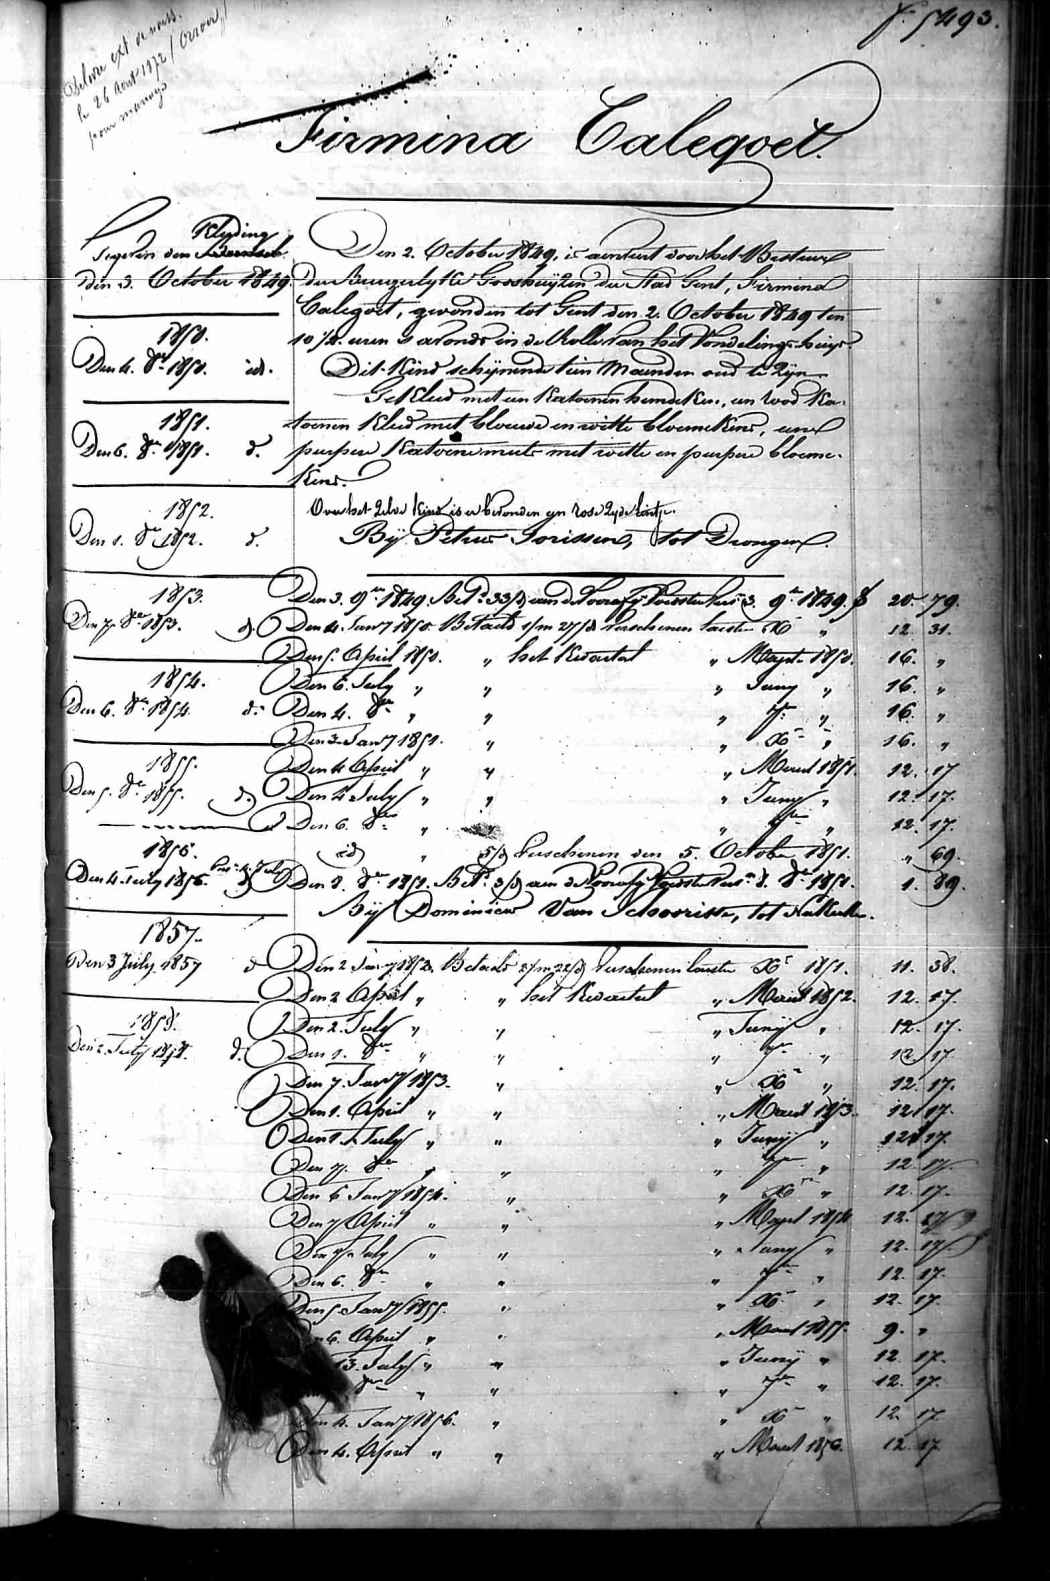 f. 5493.
Delivré ext
le 26 Aout 1872
pour mariage
Firmina Calegoet.
Kleeding
den 3. October 1849.
1850.
Den 4. 8er 1850. id.
1851.
Den 6. 8er 1851. d.
1852.
Den 1. 8er 1852. d.
1853.
Den 7. 8er 1853. d.
1854.
Den 6. 8er 1854. d.
1855.
Den 5. 8er 1855. d.
1856.
Den 4. July 1856. d
1857.
Den 3 July 1857 d
1858.
Den 2. July 1858. d.
Den 2. October 1849, is aenveert door het Bestuur
der Burgerlyke Godshuyzen der Stad Gent, Firmina
Calegoet, gevonden tot Gent den 2. October 1849 ten
10 1/4 uren 's avonds in de Rolle van het Vondelingshuys
Dit Kind schynende tien Maenden oud te zyn
Gekleed met een Katoenen hemdeken, een rood Ka-
toenen Kleed met blauwe en witte bloemekens, een
purpere Katoene muts met witte en purpere bloeme-
kens.
Over het zelve Kind is er bevonden een rose zyde lintje.
By Petrus Jorissen, tot Drongen.
Den 3. 9er 1849. Bet. 33/d aen de Voorzorg 3. 9er 1849. f 20. 79.
Den 4. Janry 1850. Betaeld 1/m 27/d verschenen laeste Xr " 12. 31.
Den 5. April 1850. " het Kwartael " Maert 1850. 16. "
Den 6. July " " " Juny " 16. "
Den 4. 8er " " " 7r " 16. "
Den 3. Janry 1851. " " Xr " 16. "
Den 4 April " " " Maert 1851. 12. 17
Den 4. July " " " Juny " 12. 17.
Den 6. 8er " " " 7er " 12. 17.
id " 5/d verschenen den 5. October 1851. " 69.
Den 8. 8er 1851. Bet. 3/d aen de Voorzorg d. 8er 1851. 1. 89.
By Dominicus Van Schoorisse, tot
Den 2 Janry 1852. Betaeld 2/m 22/d verschenen laeste Xr 1851. 11. 58.
Den 2 April " " het Kwartael " Maert 1852. 12. 17.
Den 2. July " " " Juny " 12. 17.
Den 1. 8er " " " 7er " 12 17
Den 7. Janry 1853. " " Xr " 12. 17.
Den 1. April " " " Maert 1853. 12. 17.
Den 1. July " " " Juny " 12. 17.
Den 7. 8er " " " 7er " 12. 17.
Den 6 Janry 1854. " " Xr " 12. 17.
Den 7 April " " " Maert 1854 12. 17
Den 7 July " " " Juny " 12. 17.
Den 6. 8er " " " 7er " 12. 17.
Den 5. Janry 1855. " " Xr " 12. 17.
6. April " " " Maert 1855. 9. "
13. July " " " Juny " 12. 17.
8er " " " 7er " 12. 17.
Den 4. Janry 1856. " " Xr " 12. 17
Den 4. April " " " Maert 1856. 12. 17